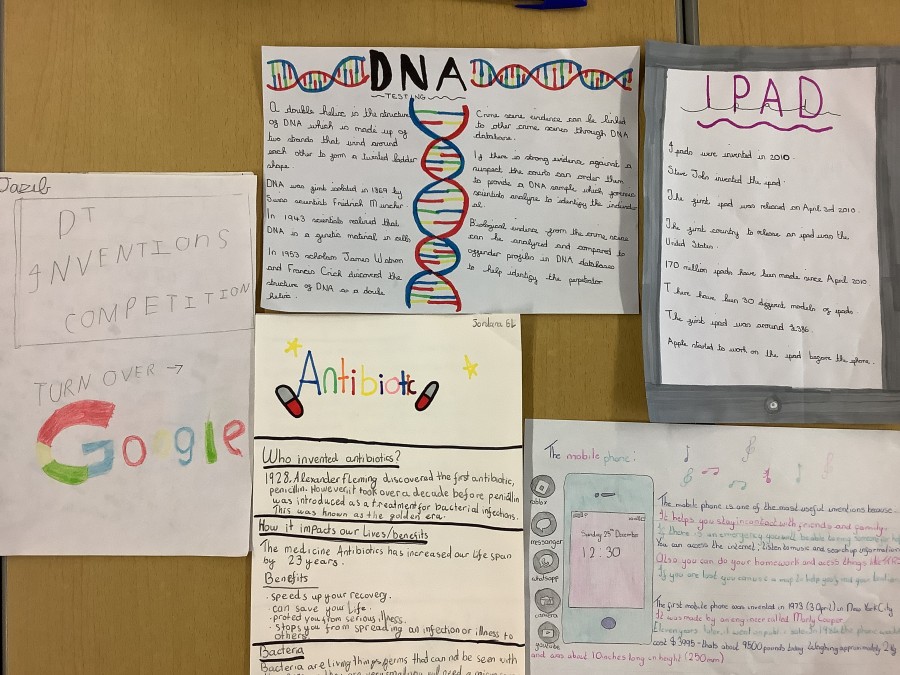 Jazib
DT
INVENTIONS
COMPETITION
TURN OVER →
Google
DNA
TESTING
A double helix is the structure
of DNA which is made up of
two strands that wind around
each other to form a twisted ladder
shape.
DNA was first isolated in 1869 by
Swiss scientists Fridrich
In 1943 scientists realised that
DNA is a genetic material in cells
In 1953 scholars James Watson
and Francis Crick discovered the
structure of DNA as a double
helix.
Crime scene evidence can be linked
to other crime scenes through DNA
databases.
If there is strong evidence against a
suspect the courts can order them
to provide a DNA sample which forensic
scientists analyze to identify the individu
al.
Biological evidence from the crime scene
can be analyzed and compared to
offender profiles in DNA databases
to help identify the perpetrator
IPAD
Ipads were invented in 2010.
Steve Jobs invented the ipad.
The first ipad was released on April 3rd 2010.
The first country to release an ipad was the
United States.
170 million ipads have been made since April 2010
There have been 30 different models of ipads.
The first ipad was around $386.
Apple started to work on the ipad before the phone.
Jordana 6L
Antibiotic
Who invented antibiotics?
1928. Alexander Fleming discovered the first antibiotic,
penicillin. However, it took over a decade before penicillin
was introduced as a treatment for bacterial infections.
This was known as the golden era.
How it impacts our lives/benefits
The medicine Antibiotics has increased our life span
by 23 years.
Benefits
· speeds up your recovery.
· can save your life.
· proted you from serious illness.
· stops you from spreading an infection or illness to
others
Bacteria
Bacteria are living things germs that can not be seen with
The mobile phone:
roblox
messanger
whatsapp
camera
youtube
Sunday 25th December
12:30
The mobile phone is one of the most useful inventions because...
It helps you stay incontact with friends and family.
If there is an emergency you will be able to
You can access the internet, listen to music and search up information
Also you can do your homework and access things like
If you are lost you can use a map to help you find your
The first mobile phone was invented in 1973 (3 April) in New York City
It was made by an engineer called Marty Cooper
Eleven years later, it went on public sale. In 1984 the phone would
cost $3995 - thats about 9500 pounds today. Weighing approximately 2 kg
and was about 10 inches long in height (250mm)